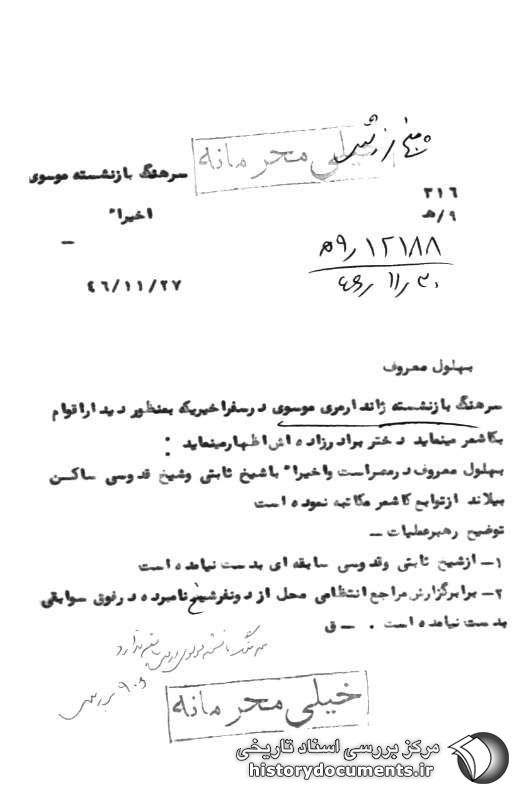 خیلی محرمانه
سرهنگ بازنشسته موسوی
۳۱۶
اخیرا"
۹/ه
۱۲۱۸۸ /۹ه
۴۶/۱۱/۳۰
۴۶/۱۱/۲۷
بهلول معروف
سرهنگ بازنشسته ژاندارمری موسوی در سفر اخیریکه بمنظور دیدار اقوام
بکاشمر مینماید دختر برادرزاده اش اظهار مینماید :
بهلول معروف در مصر است و اخیرا" با شیخ ثابتی و شیخ قدوسی ساکن
بیلاند از توابع کاشمر مکاتبه نموده است
توضیح رهبر عملیات ــ
۱ــ از شیخ ثابتی و قدوسی سابقه ای بدست نیامده است
۲ــ برابر گزارش مراجع انتظامی محل از دو نفر شیخ نامبرده در فوق سوابقی
بدست نیامده است . ــ ق
سرهنگ بازنشسته موسوی ندارد
۹۰۵ بررسی
خیلی محرمانه
مرکز بررسی اسناد تاریخی
historydocuments.ir